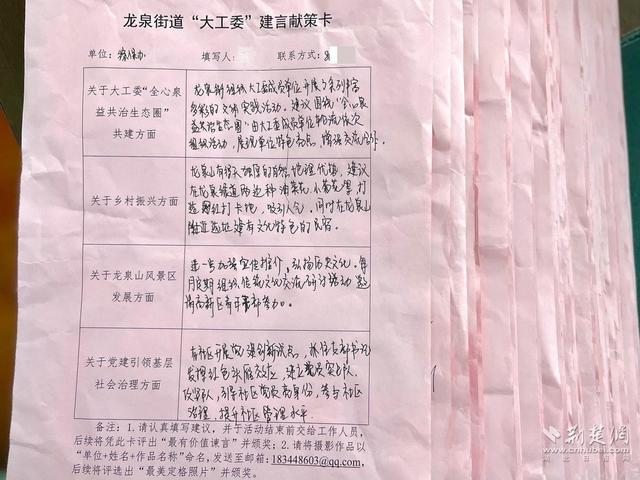 龙泉街道“大工委”建言献策卡
单位: 填写人: 联系方式:
关于大工委“全心泉
益共治生态圈”
共建方面
龙泉街组织大工委成员单位开展了系列丰富
多彩的文体实践活动。建议围绕“全心泉
益共治生态圈”由大工委成员单位轮流依次
组织活动,展现单位特色亮点,增强交流合作。
关于乡村振兴方面
龙泉山有得天独厚的自然地理优势,建议
在龙泉绿道两边种油菜花、小菊花等,打
造网红打卡地,吸引人气。同时在龙泉山
附近选址建有文化特色的民宿。
关于龙泉山风景区
发展方面
进一步加强宣传推介,弘扬历史文化。每
月定期组织传统文化交流研讨活动,邀
请高新区青年干部参加。
关于党建引领基层
社会治理方面
在社区开展党建创新试点,抓住支部书记
发挥红色头雁效应,建立党员突击队、
志愿队,引导社区党员亮身份,参与社区
治理,提升社区管理水平。
备注:1.请认真填写建议,并于活动结束前交给工作人员,
后续将凭此卡评出“最有价值谏言”并颁奖;2.请将摄影作品以
“单位+姓名+作品名称”命名,发送至邮箱:183448603@qq.com,
后续将评选出“最美定格照片”并颁奖。
荆楚网